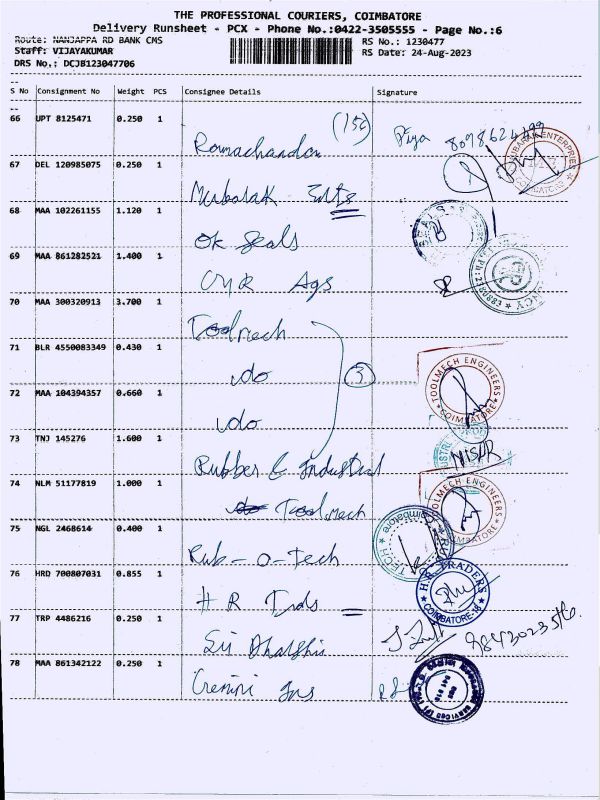 THE PROFESSIONAL COURIERS, COIMBATORE
Delivery Runsheet - PCX - Phone No.:0422-3505555 - Page No.:6
Route: NANJAPPA RD BANK CMS RS No.: 1230477
Staff: VIJAYAKUMAR RS Date: 24-Aug-2023
DRS No.: DCJB123047706
S No Consignment No Weight PCS Consignee Details Signature
66 UPT 8125471 0.250 1
Ramachandan
67 DEL 120985075 0.250 1
Mubarak Ents
68 MAA 102261155 1.120 1
Ok Seals
69 MAA 861282521 1.400 1
Ags
70 MAA 300320913 3.700 1
Toolmech
71 BLR 4550083349 0.430 1
do
TOOLMECH ENGINEERS
COIMBATORE
72 MAA 104394357 0.660 1
do
73 TNJ 145276 1.600 1
Rubber & Industrial
NISAR
74 NLM 51177819 1.000 1
Toolmech
TOOLMECH ENGINEERS
COIMBATORE
75 NGL 2468614 0.400 1
Rub-o-Tech
76 HRD 700807031 0.855 1
H R Trds
H.R. TRADERS
COIMBATORE-18
77 TRP 4486216 0.250 1
78 MAA 861342122 0.250 1
Gemini Ins